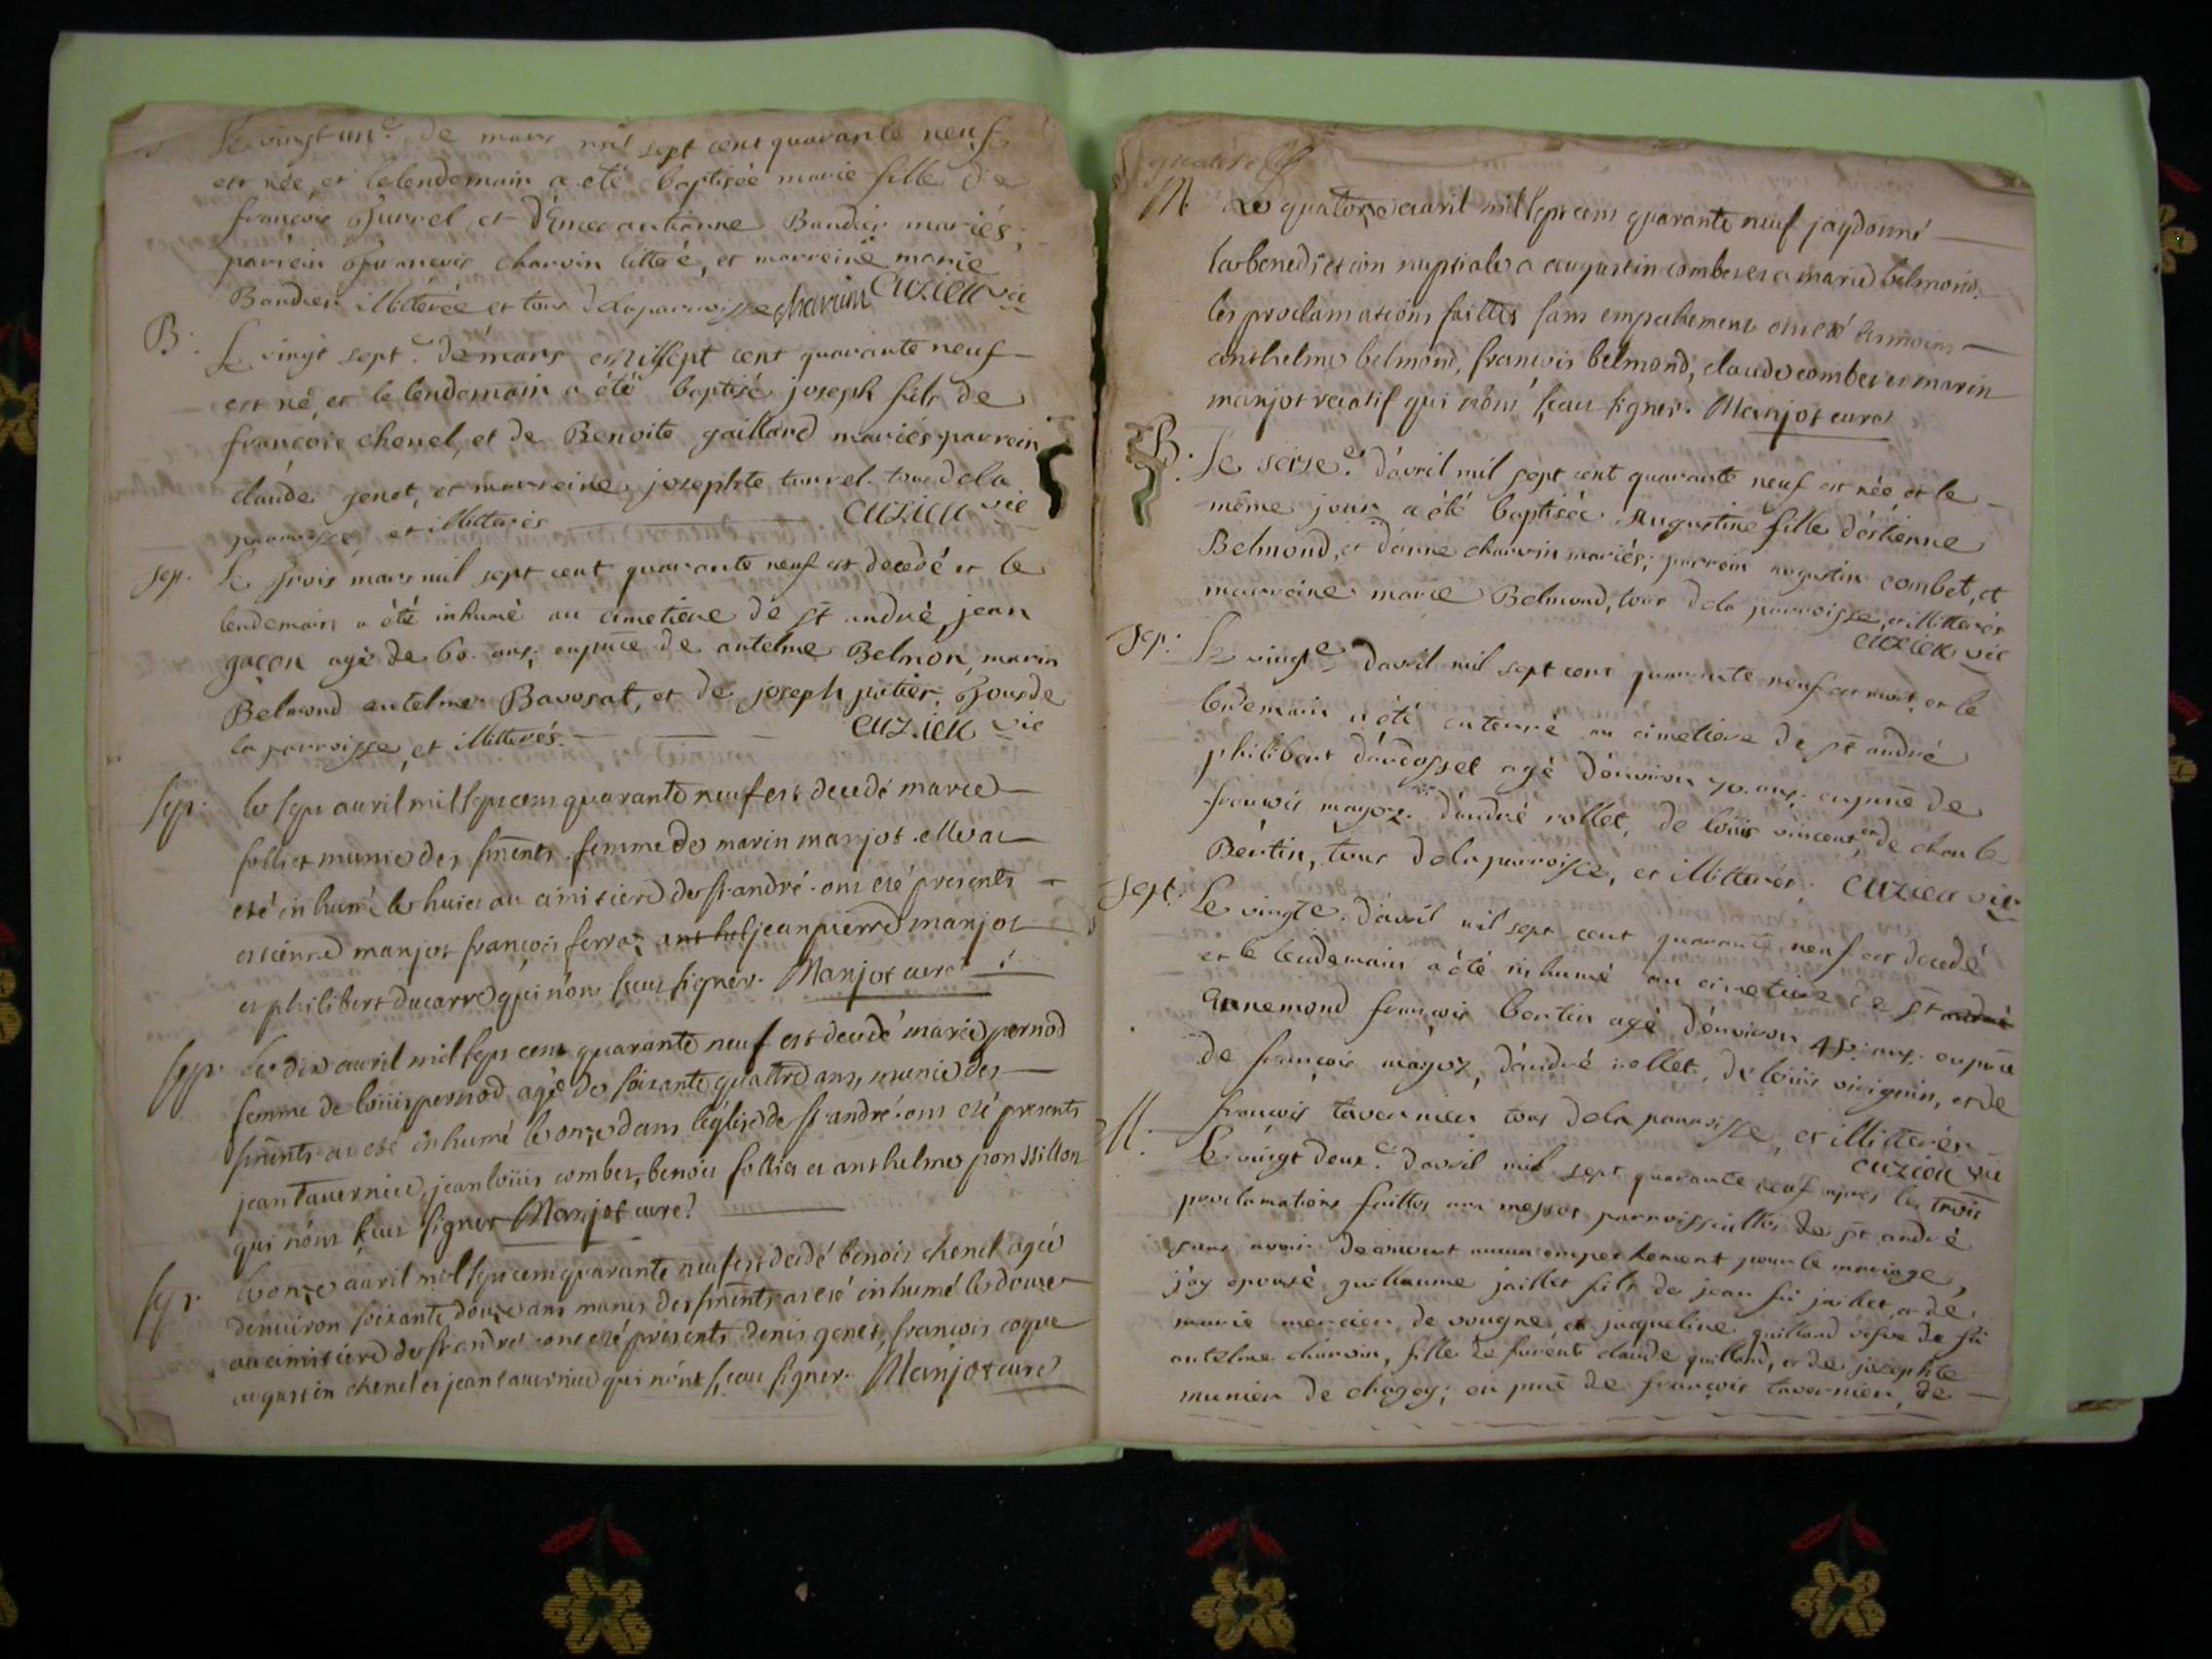 Le vingt un.e de mars mil sept cent quarante neuf
est née, et le lendemain a eté baptisée marie fille de
francois Jurrel et Baudier mariés;
parrein francois charvin litteré, et marreine marie
Baudier illiterée et tous de la parroisse charvin cuzieu vic
B. Le vingt sept.e de mars mil sept cent quarante neuf
est né, et le lendemain a été baptisé joseph fils de
francois chenel, et de Benoite gaillard mariés parrein
claude genet, et marreine josephte turrel. tous de la
parroisse et illitterés cuzieu vic
sep. Le trois mars mil sept cent quarante neuf est decedé et le
lendemain a été inhumé au cimetiere de st andré, jean
gaçon agé de 60. ans; en pnce de antelme Belmon, marin
Belmond antelme Bavosat, et de joseph putier. Tous de
la parroisse, et illitterés. cuzieu vic
sep. le sept auril mil sept cens quarante neuf est decedé marie
folliet munie des sments. femme de marin manjot. elle at
eté inhumé le huict au cimitiere de st andré. ont eté presents
estienne manjot françois ferraz jean pierre manjot
et philibert ducarre qui nónt sceu signer. Manjot curé
sep. Le dix auril mil sept cent quarante neuf est decedé marie pernod
femme de loüis pernod agée de soixante quattre ans, munie des
sments at eté inhumé le onze dans léglise de st andré. ont eté presents
jean tavernier, jean loüis combet, benoit folliet et anthelme ponssillon
qui nónt sceu signer Manjot curé
sep. le onze auril mil sept cent quarante neuf est decedé benoit chenel agée
denuiron soixante douze ans munis des sments at eté inhumé le douze
au cimitiere de st andré ont eté presents denis genet, francois coque
augustin chenel et jean tauernier qui nónt sceu signer. Manjot curé
quatorze
M. Le quatorze auril mil sept cens quarante neuf jay donné
la benediction nuptiale a augustin combet et a marie belmond.
les proclamations faittes sans empechement ont eté temoins
anthelme belmond, francois belmond, claude combet et marin
manjot qui nónt sceu signer. Manjot curé
B. Le seize.e d'avril mil sept cent quarante neuf est née et le
même jour a été baptisée Augustine fille d'estienne
Belmond, et d'anne charvin mariés; parrein augustin combet, et
marreine marie Belmond, tous de la parroisse, et illitterés
cuzieu vic
sep. Le vingt.e d'avril mil sept cent quarante neuf est mort, et le
lendemain a été enterré au cimetiere de st andré
philibert agé d'environ 70. ans; en pnce de
francois mayoz. d'andré rollet, de loüis vincent, et de charle
Bertin, tous de la parroisse, et illitterés. cuzieu vic
sept. Le vingt.e d'avril mil sept cent quarante neuf est decedé
et le lendemain a été inhumé au cimetiere de st andré
Ennemond francois bertin agé d'environ 48. ans; en pnce
de francois mayoz, d'andré rollet, de loüis virignin, et de
francois tavernier tous de la parroisse, et illitterés
cuzieu vic
M. Le vingt deux.e d'avril mil sept quarante neuf apres les trois
proclamations faittes aux messes parroissialles de st andré
sans avoir decouvert aucun empechement pour le mariage,
j'ay epousé guillaume jaillet fils de jean fü jaillet, et de
marie mercier, de vougne, et jacqueline guilland vefve de fü
antelme charvin, fille de furent claude guilland, et de josephte
munier de chagey; en pnce de francois tavernier, de